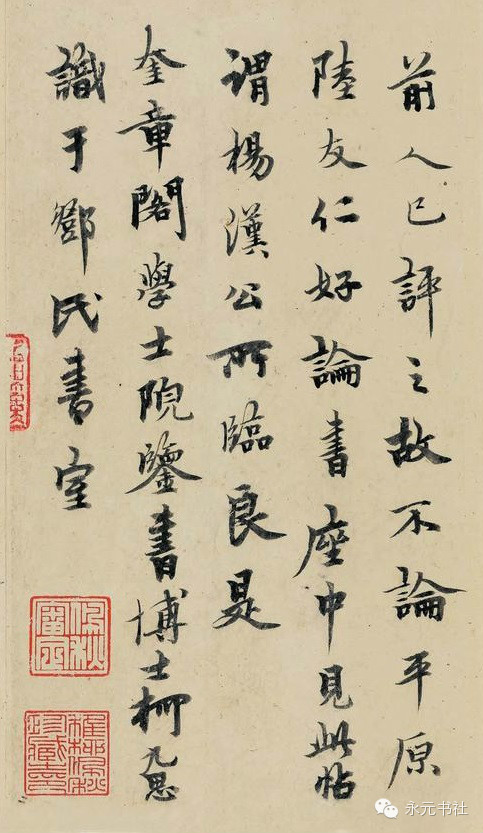 前人已評之故不論平原
陸友仁好論書座中見此帖
謂楊漢公所臨良是
奎章閣學士院鑒書博士柯九思
識于鄧氏書室
永元书社